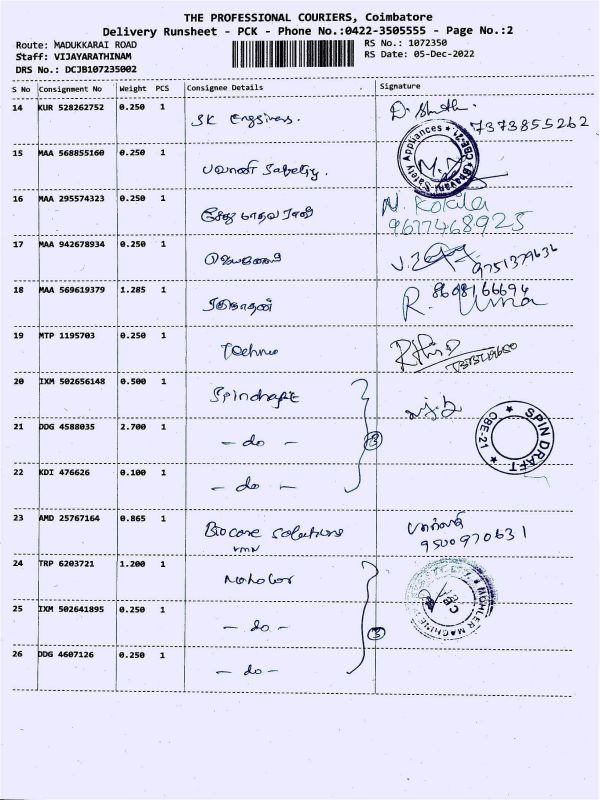 THE PROFESSIONAL COURIERS, Coimbatore
Delivery Runsheet - PCK - Phone No.:0422-3505555 - Page No.:2
Route: MADUKKARAI ROAD
RS No.: 1072350
Staff: VIJAYARATHINAM
RS Date: 05-Dec-2022
DRS No.: DCJB107235002
S No Consignment No Weight PCS Consignee Details Signature
14 KUR 528262752 0.250 1 SK
7373855262
15 MAA 568855160 0.250 1 பவானி Safety.
Bhavani Safety Appliances CBE-21
16 MAA 295574323 0.250 1
N. Kokila
9677468925
17 MAA 942678934 0.250 1
9751379636
18 MAA 569619379 1.285 1
8608166694
R. Uma
19 MTP 1195703 0.250 1 Techno
20 IXM 502656148 0.500 1 Spindraft
21 DDG 4588035 2.700 1 - do -
3
SPIN DRAFT CBE-21
22 KDI 476626 0.100 1 - do -
23 AMD 25767164 0.865 1 Biocare Solutions
9500970631
24 TRP 6203721 1.200 1
25 IXM 502641895 0.250 1 - do -
3
26 DDG 4607126 0.250 1 - do -